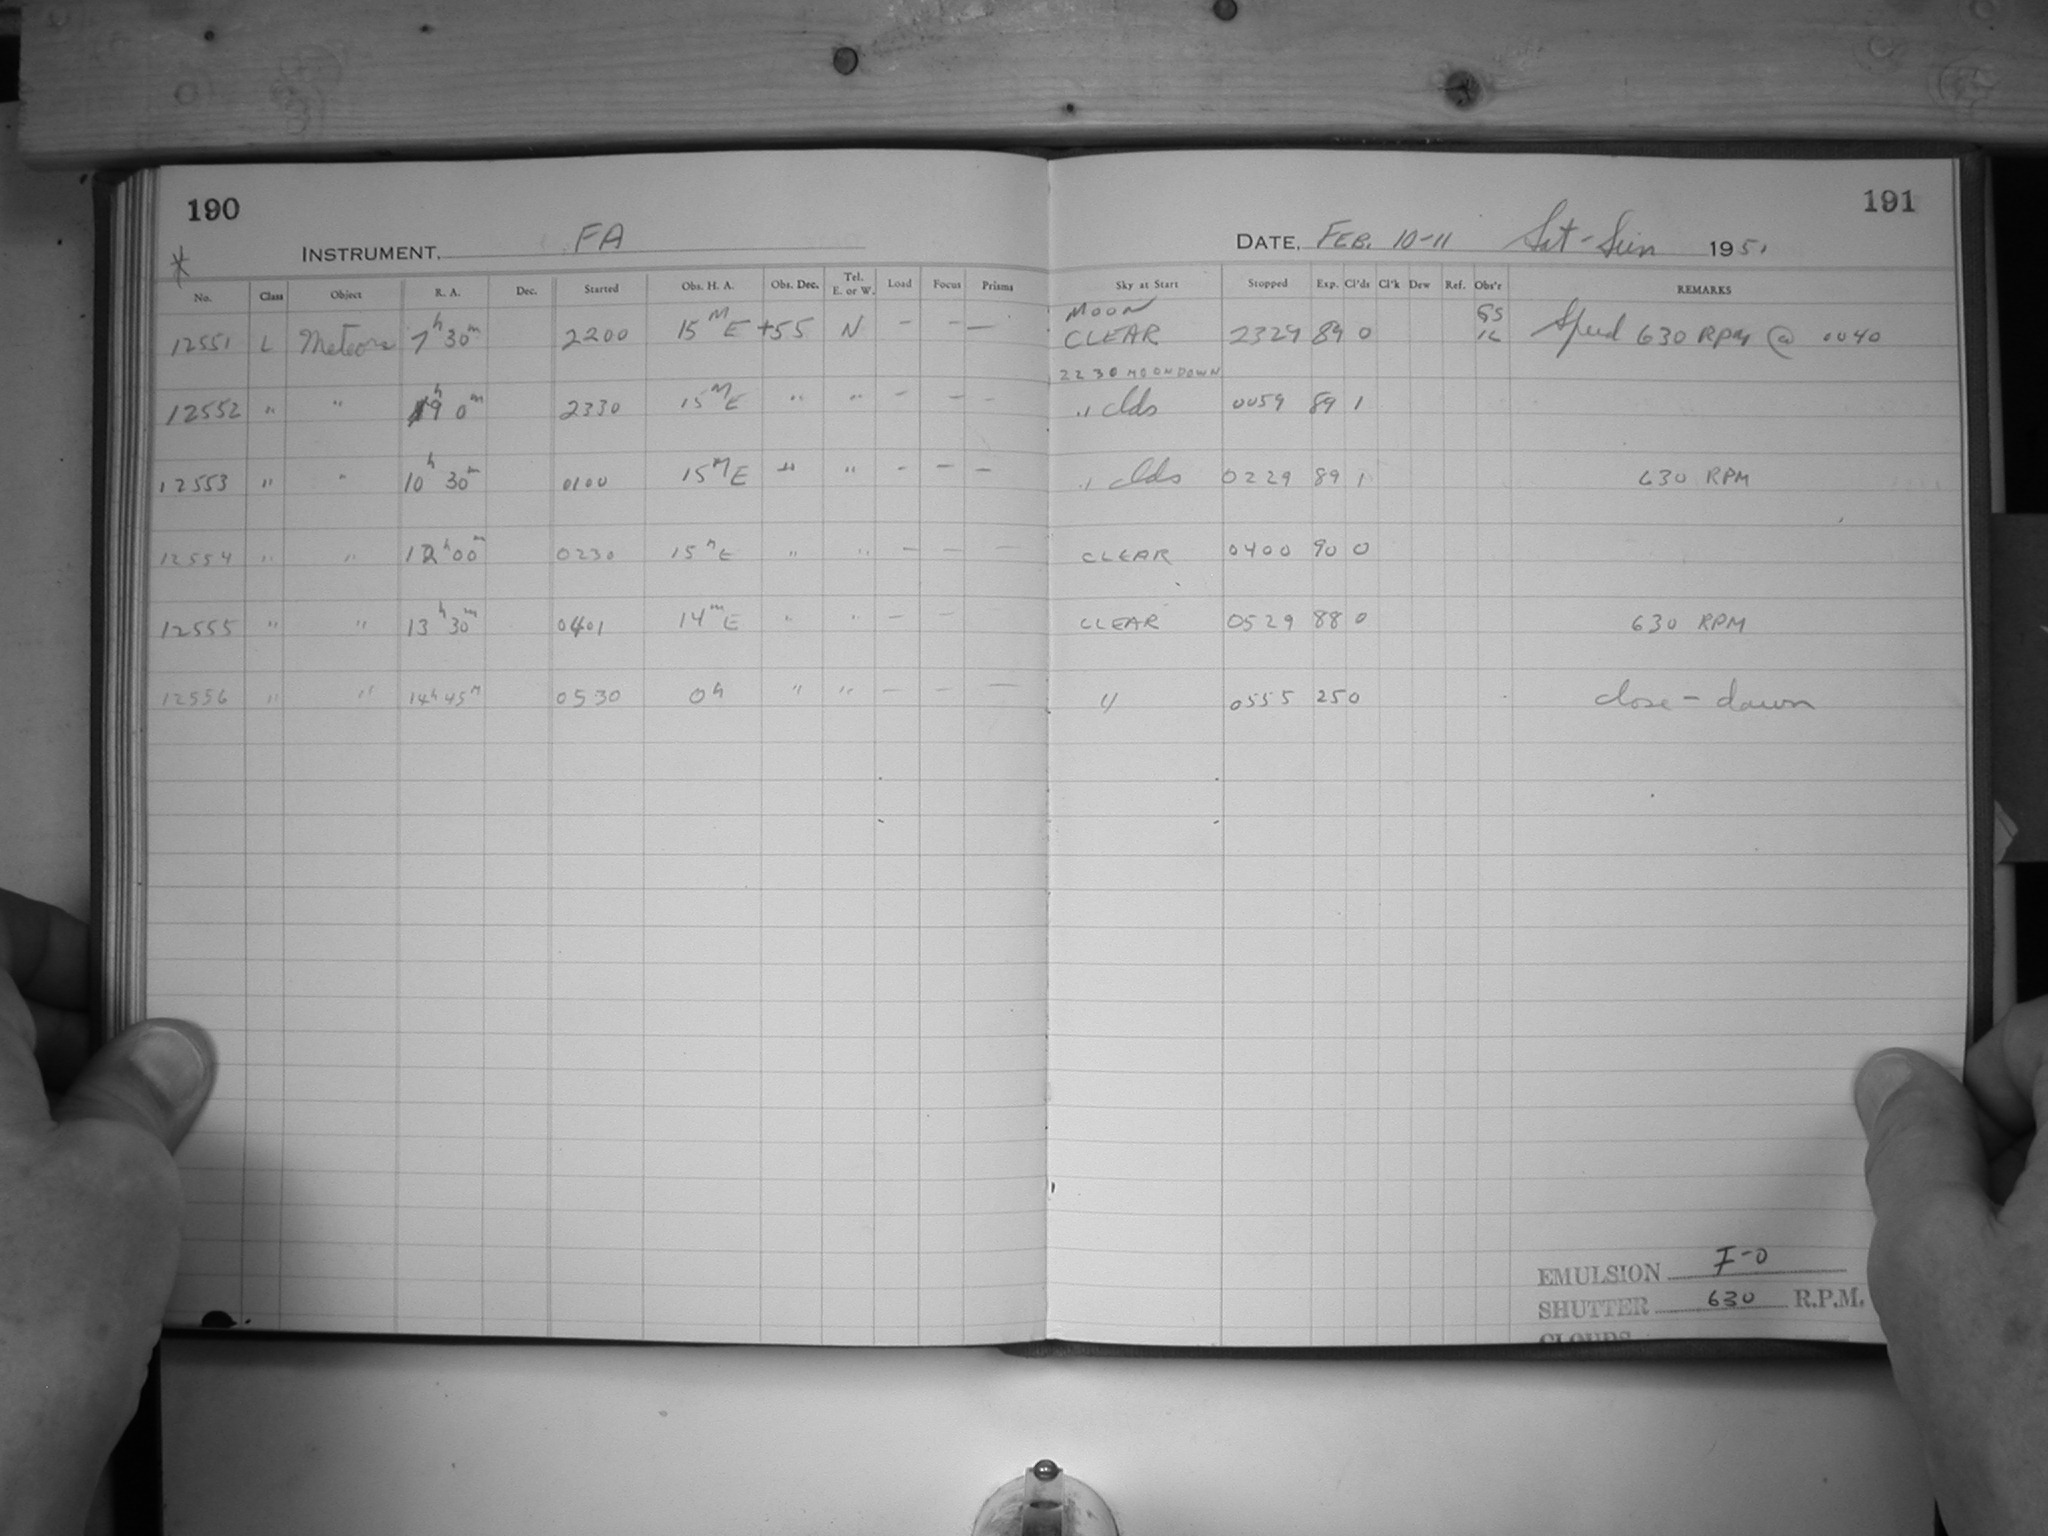 190
191
* INSTRUMENT, FA
DATE, FEB. 10-11 Sat-Sun 1951
No. Class Object R. A. Dec. Started Obs. H. A. Obs. Dec. Tel. E. or W. Load Focus Prisms Sky at Start Stopped Exp. Cl'ds Cl'k Dew Ref. Obs'r REMARKS
MOON GS
12551 L Meteors 7h 30m 2200 15M E +55 N - - - CLEAR 2329 89 0 Speed 630 RPM @ 0040
2230 MOONDOWN
12552 " " 9h 0m 2330 15M E " " - - - .1 clds 0059 89 1
12553 " " 10h 30m 0100 15M E " " - - - .1 clds 0229 89 1 630 RPM
12554 " " 12h 00m 0230 15M E " " - - - CLEAR 0400 90 0
12555 " " 13h 30m 0401 14m E " " - - CLEAR 0529 88 0 630 RPM
12556 " " 14h 45m 0530 0h " " - - - " 0555 25 0 close-down
EMULSION I-0
SHUTTER 630 R.P.M.
CLOUDS